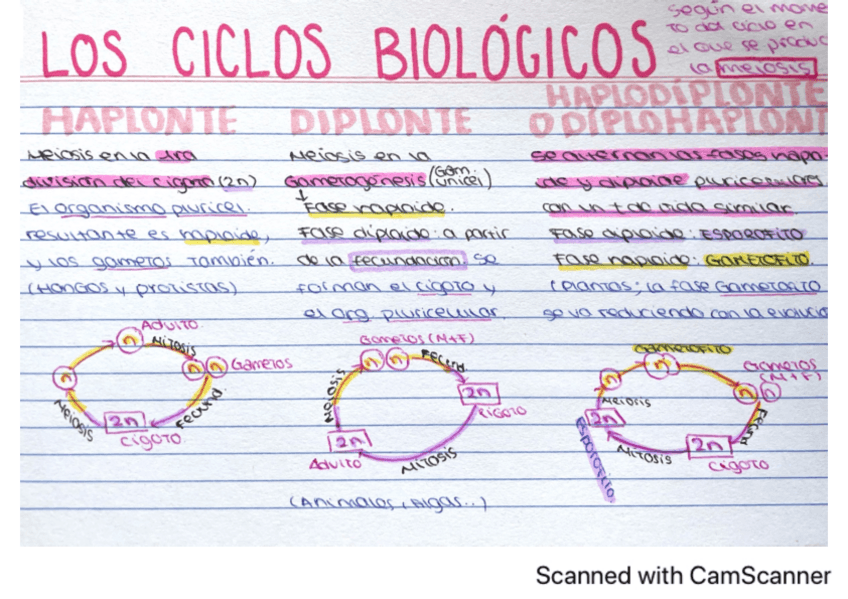 LOS CICLOS BIOLÓGICOS
según el mome
to del ciclo en
el que se produc
la meiosis
HAPLONTE
Meiosis en la 1ra
división del cigoto (2n)
El organismo pluricel.
resultante es haploide,
y los gametos también.
(Hongos y protistas)
Adulto
Mitosis
n
n n Gametos
n
Fecund.
2n
Meiosis
cigoto
DIPLONTE
Meiosis en la
Gametogénesis (Gam. unicel)
↓ Fase haploide.
Fase diploide: a partir
de la fecundación se
forman el cigoto y
el org. pluricelular.
Gametos (M+F)
n n
Fecund.
Meiosis
2n
cigoto
2n
Adulto
Mitosis
(Animales, Algas..)
HAPLODIPLONTE
O DIPLOHAPLONT
se alternan las fases haploi-
de y diploide pluricelulares
con un t de vida similar.
Fase diploide: ESPOROFITO
Fase haploide: GAMETOFITO.
(Plantas; la fase Gametofito
se va reduciendo con la evolución
Gametofito
n
n
Gametos
(M+F)
n n
Meiosis
Fecun
2n
2n
Mitosis
cigoto
Esporofito
Scanned with CamScanner